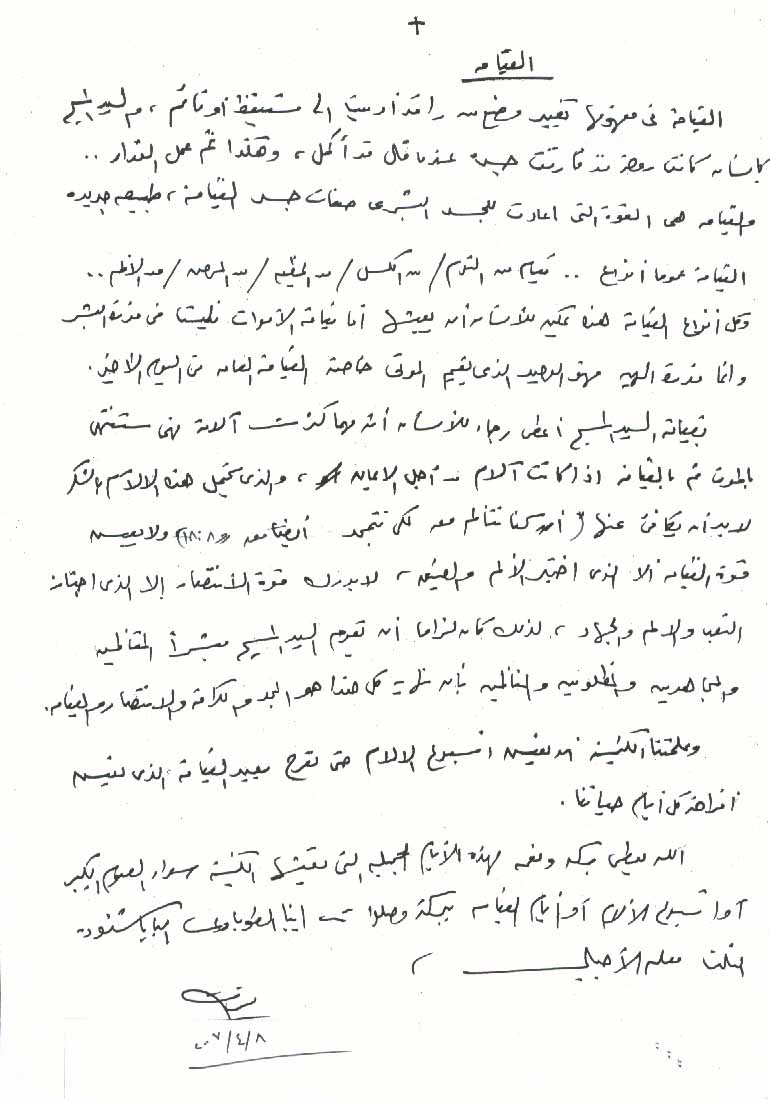 القيامه
القيامة فى مفهومها تغيير وضع من راقد أو ميتا الى مستيقظ أو قائم ، والسيد المسيح
كإنسان كانت روحه قد فارقت جسده عندما قال قد أكمل ، وهكذا تم عمل الفداء ..
والقيامه هى القوة التى اعادت للجسد البشرى صفات جسد القيامة ، طبيعه جديده
القيامة عموما أنواع .. قيام من النوم / من الكسل / من الخطيه / من المرض / من الألم ..
وكل أنواع القيامة هذه يمكن للأنسان أن يعيشها أما قيامة الأموات فليست فى قدرة البشر
وانما قدرة الهيه فهو الوحيد الذى يقيم الموتى خاصة القيامة العامه فى اليوم الأخير.
بقيامة السيد المسيح أعطى رجاء للأنسان أنه مهما كثرت آلامة فهى ستنتهى
بالموت ثم بالقيامه اذا كانت آلام من أجل الايمان ، والذى يحتمل هذه الالام بشكر
لابد أن يكافئ عنها (أن كنا نتألم معه لكى نتمجد أيضا معه رو ٨:١٨) ولا يعيش
قوة القيامه الا الذى اختبر الألم والضيق ، لا يدرك قوة الأنتصار إلا الذى اجتاز
التعب والالم والجهاد ، لذلك كان لزاما أن يقوم السيد المسيح مبشرأ المتألمين
والمجاهدين والمظلومين بأن كل هذا هو المجد والكرامة والانتصار والقيامه.
وعلمتنا الكنيسة أن نعيش اسبوع الالام حتى نفرح بعيد القيامة الذى نعيش
افراحه كل أيام حياتنا .
الله يعطى بركه ونعمه بهذه الأيام الجميله التى تعيشها الكنيسة سواء الصوم الكبير
أو اسبوع الألام أو أيام القيامه ببركة وصلوات ابينا الطوباوى البابا شنوده
الثالث معلم الأجيال ،
٢٠٠٧/٤/٨